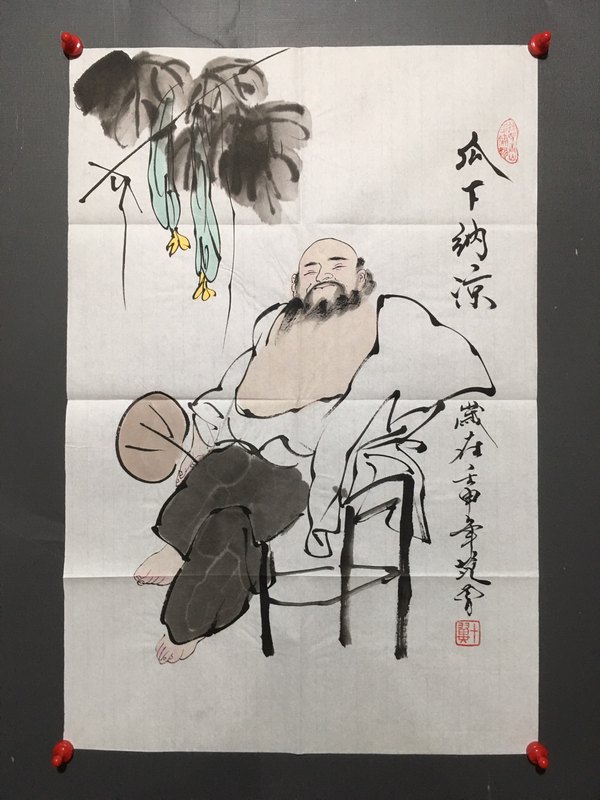 瓜下纳凉
岁在壬申年范曾
十翼